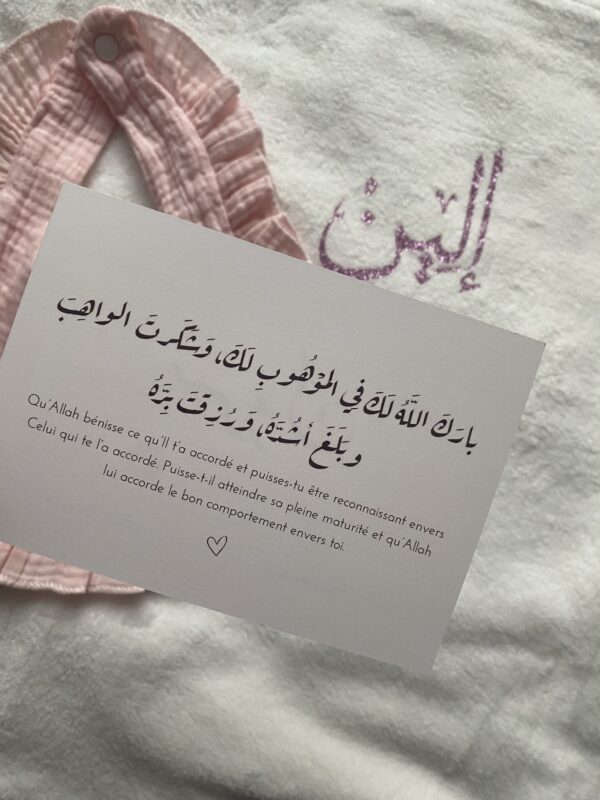 إلين
بارَكَ اللَّهُ لَكَ فِي المَوْهُوبِ لَكَ، وَشَكَرتَ الواهِبَ
وبَلَغَ أشُدَّهُ، وَرُزِقتَ بِرَّهُ
Qu'Allah bénisse ce qu'Il t'a accordé et puisses-tu être reconnaissant envers
Celui qui te l'a accordé. Puisse-t-il atteindre sa pleine maturité et qu'Allah
lui accorde le bon comportement envers toi.